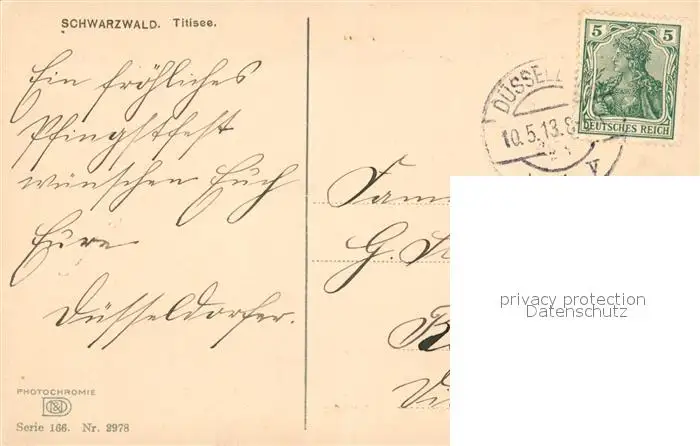 SCHWARZWALD. Titisee.
Ein fröhliches
Pfingstfest
wünschen Euch
Eure
Düsseldorfer.
PHOTOCHROMIE
Serie 166. Nr. 2978
5 5
DEUTSCHES REICH
10.5.13.8
V
G.
privacy protection
Datenschutz